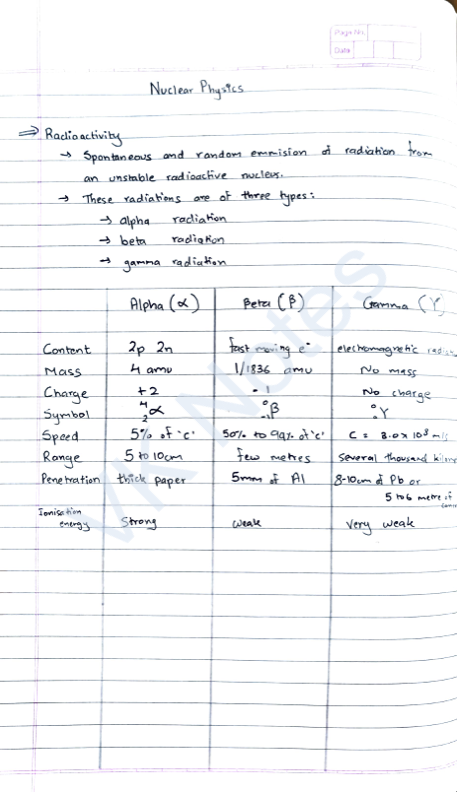 Page No.
Date
Nuclear Physics
⇒ Radioactivity
→ Spontaneous and random emmision of radiation from
an unstable radioactive nucleus.
→ These radiations are of three types:
→ alpha radiation
→ beta radiation
→ gamma radiation
Alpha (α) Beta (β) Gamma (γ)
Content 2p 2n fast moving e⁻ electromagnetic
Mass 4 amu 1/1836 amu No mass
Charge +2 -1 No charge
Symbol ⁴₂α ⁰₋₁β ⁰₀γ
Speed 5% of 'c' 50% to 99% of 'c' C = 3.0 x 10⁸ m/s
Range 5 to 10cm few metres Several thousand
Penetration thick paper 5mm of Al 8-10cm of Pb or
5 to 6 metre of
Ionisation
energy Strong weak very weak
VK Notes